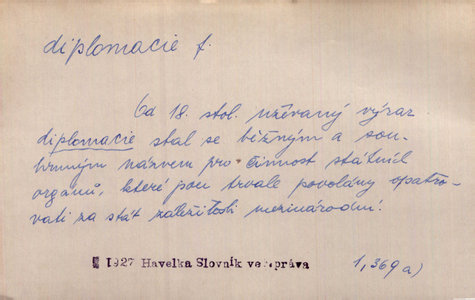 diplomacie f.
Od 18. stol. užívaný výraz
diplomacie stal se běžným a sou-
hrnným názvem pro činnost státních
orgánů, které jsou trvale povolány opatro-
vati za stát záležitosti mezinárodní.
1927 Havelka Slovník veř. práva
1,369 a)